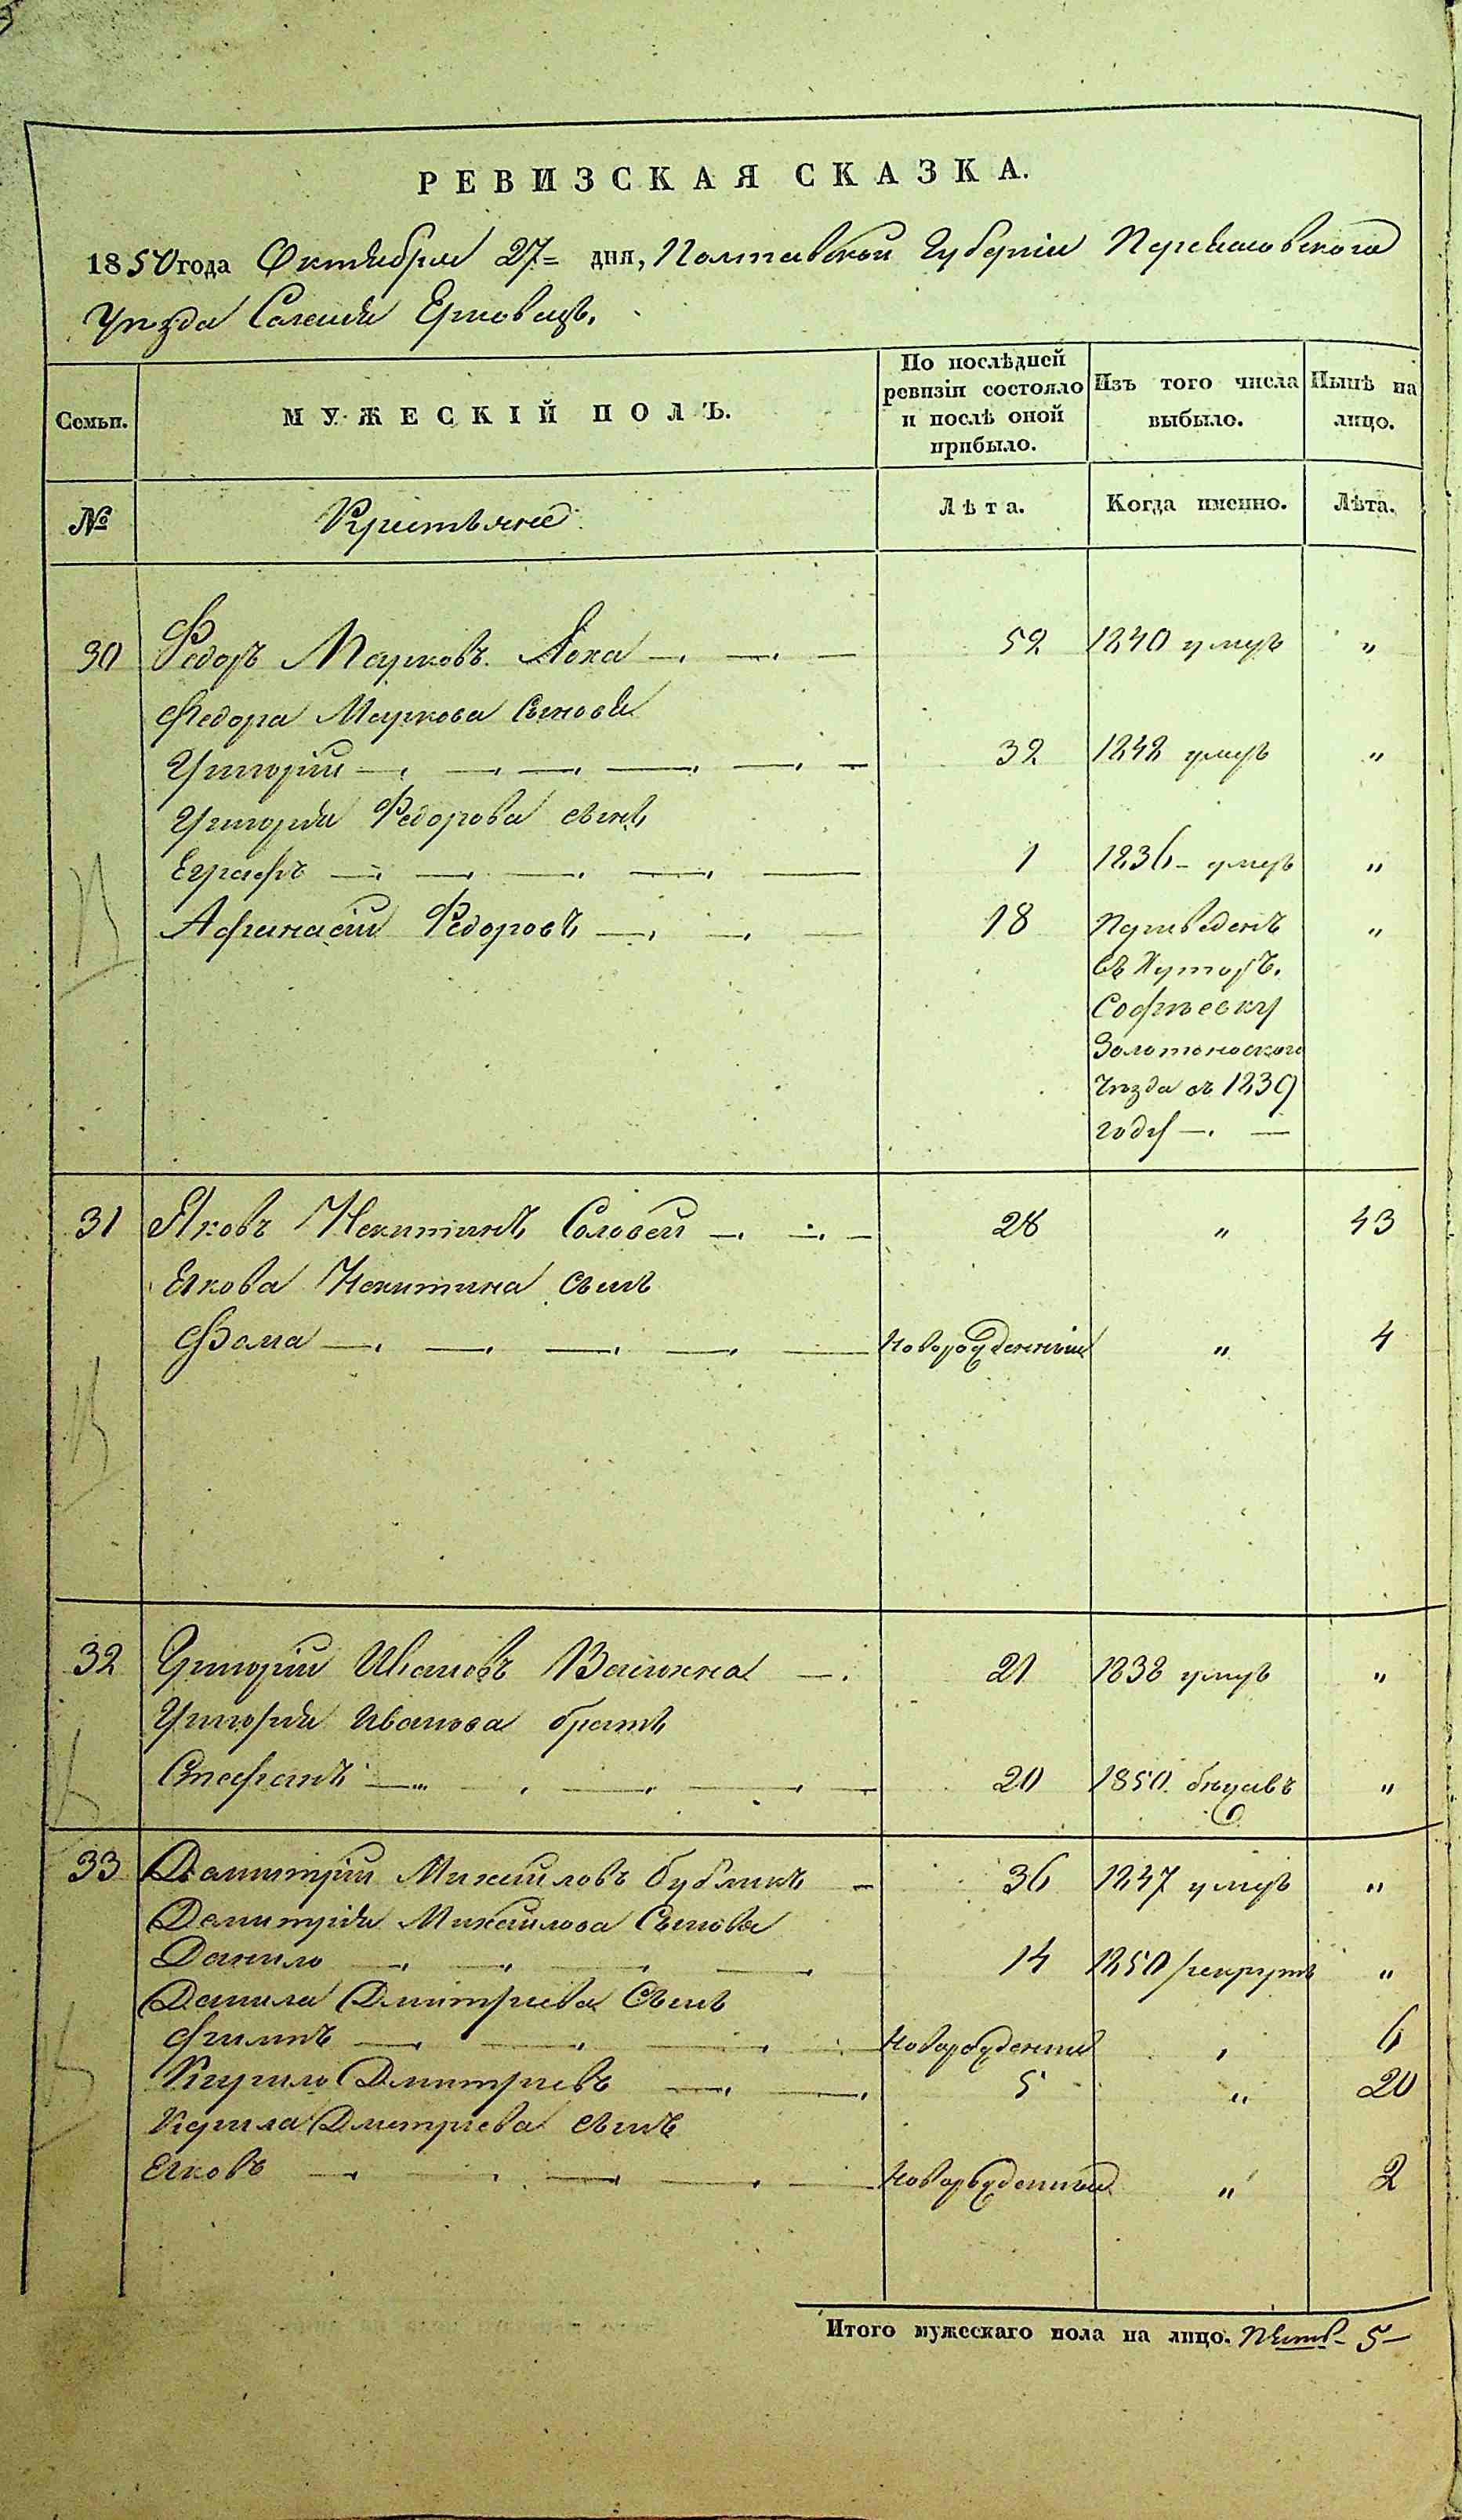 РЕВИЗСКАЯ СКАЗКА.
1850 года Октября 27 = дня, Полтавской Губерніи Переяславского
Уезда Селенія Ерковецъ.
Семьи.
МУЖЕСКІЙ ПОЛЪ.
По послѣдней ревизіи состояло и послѣ оной прибыло.
Изъ того числа выбыло.
Нынѣ на лицо.
№
Крестьяне
Лѣта.
Когда именно.
Лѣта.
30 Федоръ Марковъ 52 1840 умеръ "
Федора Маркова Сынови
Григорій 32 1842 умеръ "
Григорія Федорова сынъ
Еграфъ 1 1836 - умеръ "
Афанасій Федоровъ 18 Приведенъ "
въ Хуторъ.
Софіевку
Золотоноского
Уезда въ 1839
году
31 Яковъ Некитинъ Соловей 28 " 43
Якова Некитина сынъ
Фома Новорожденній " 4
32 Григорій Ивановъ 21 1838 умеръ "
Григорія Иванова братъ
Стефанъ 20 1850 бежавъ "
33 Демитрій Михайловъ бубликъ 36 1847 умеръ "
Демитрія Михайлова Сынова
Данило 14 1850 рекрутъ "
Данила Дмитріева Сынъ
Филипъ Новорожденній " 6
Кирило Дмитріевъ 5 " 20
Кирила Дметріева сынъ
Яковъ Новорожденній " 2
Итого мужескаго пола на лицо. Пять - 5 -